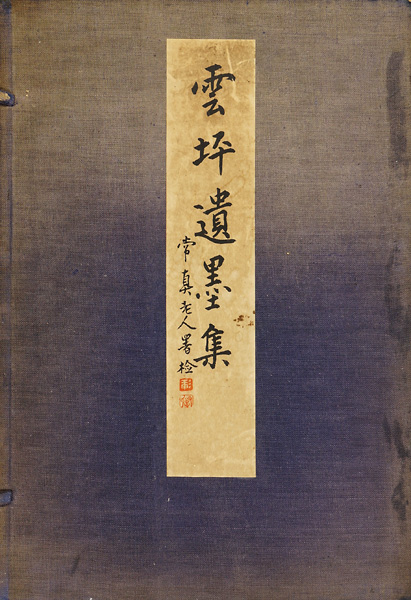 雲坪遺墨集
常真老人署檢